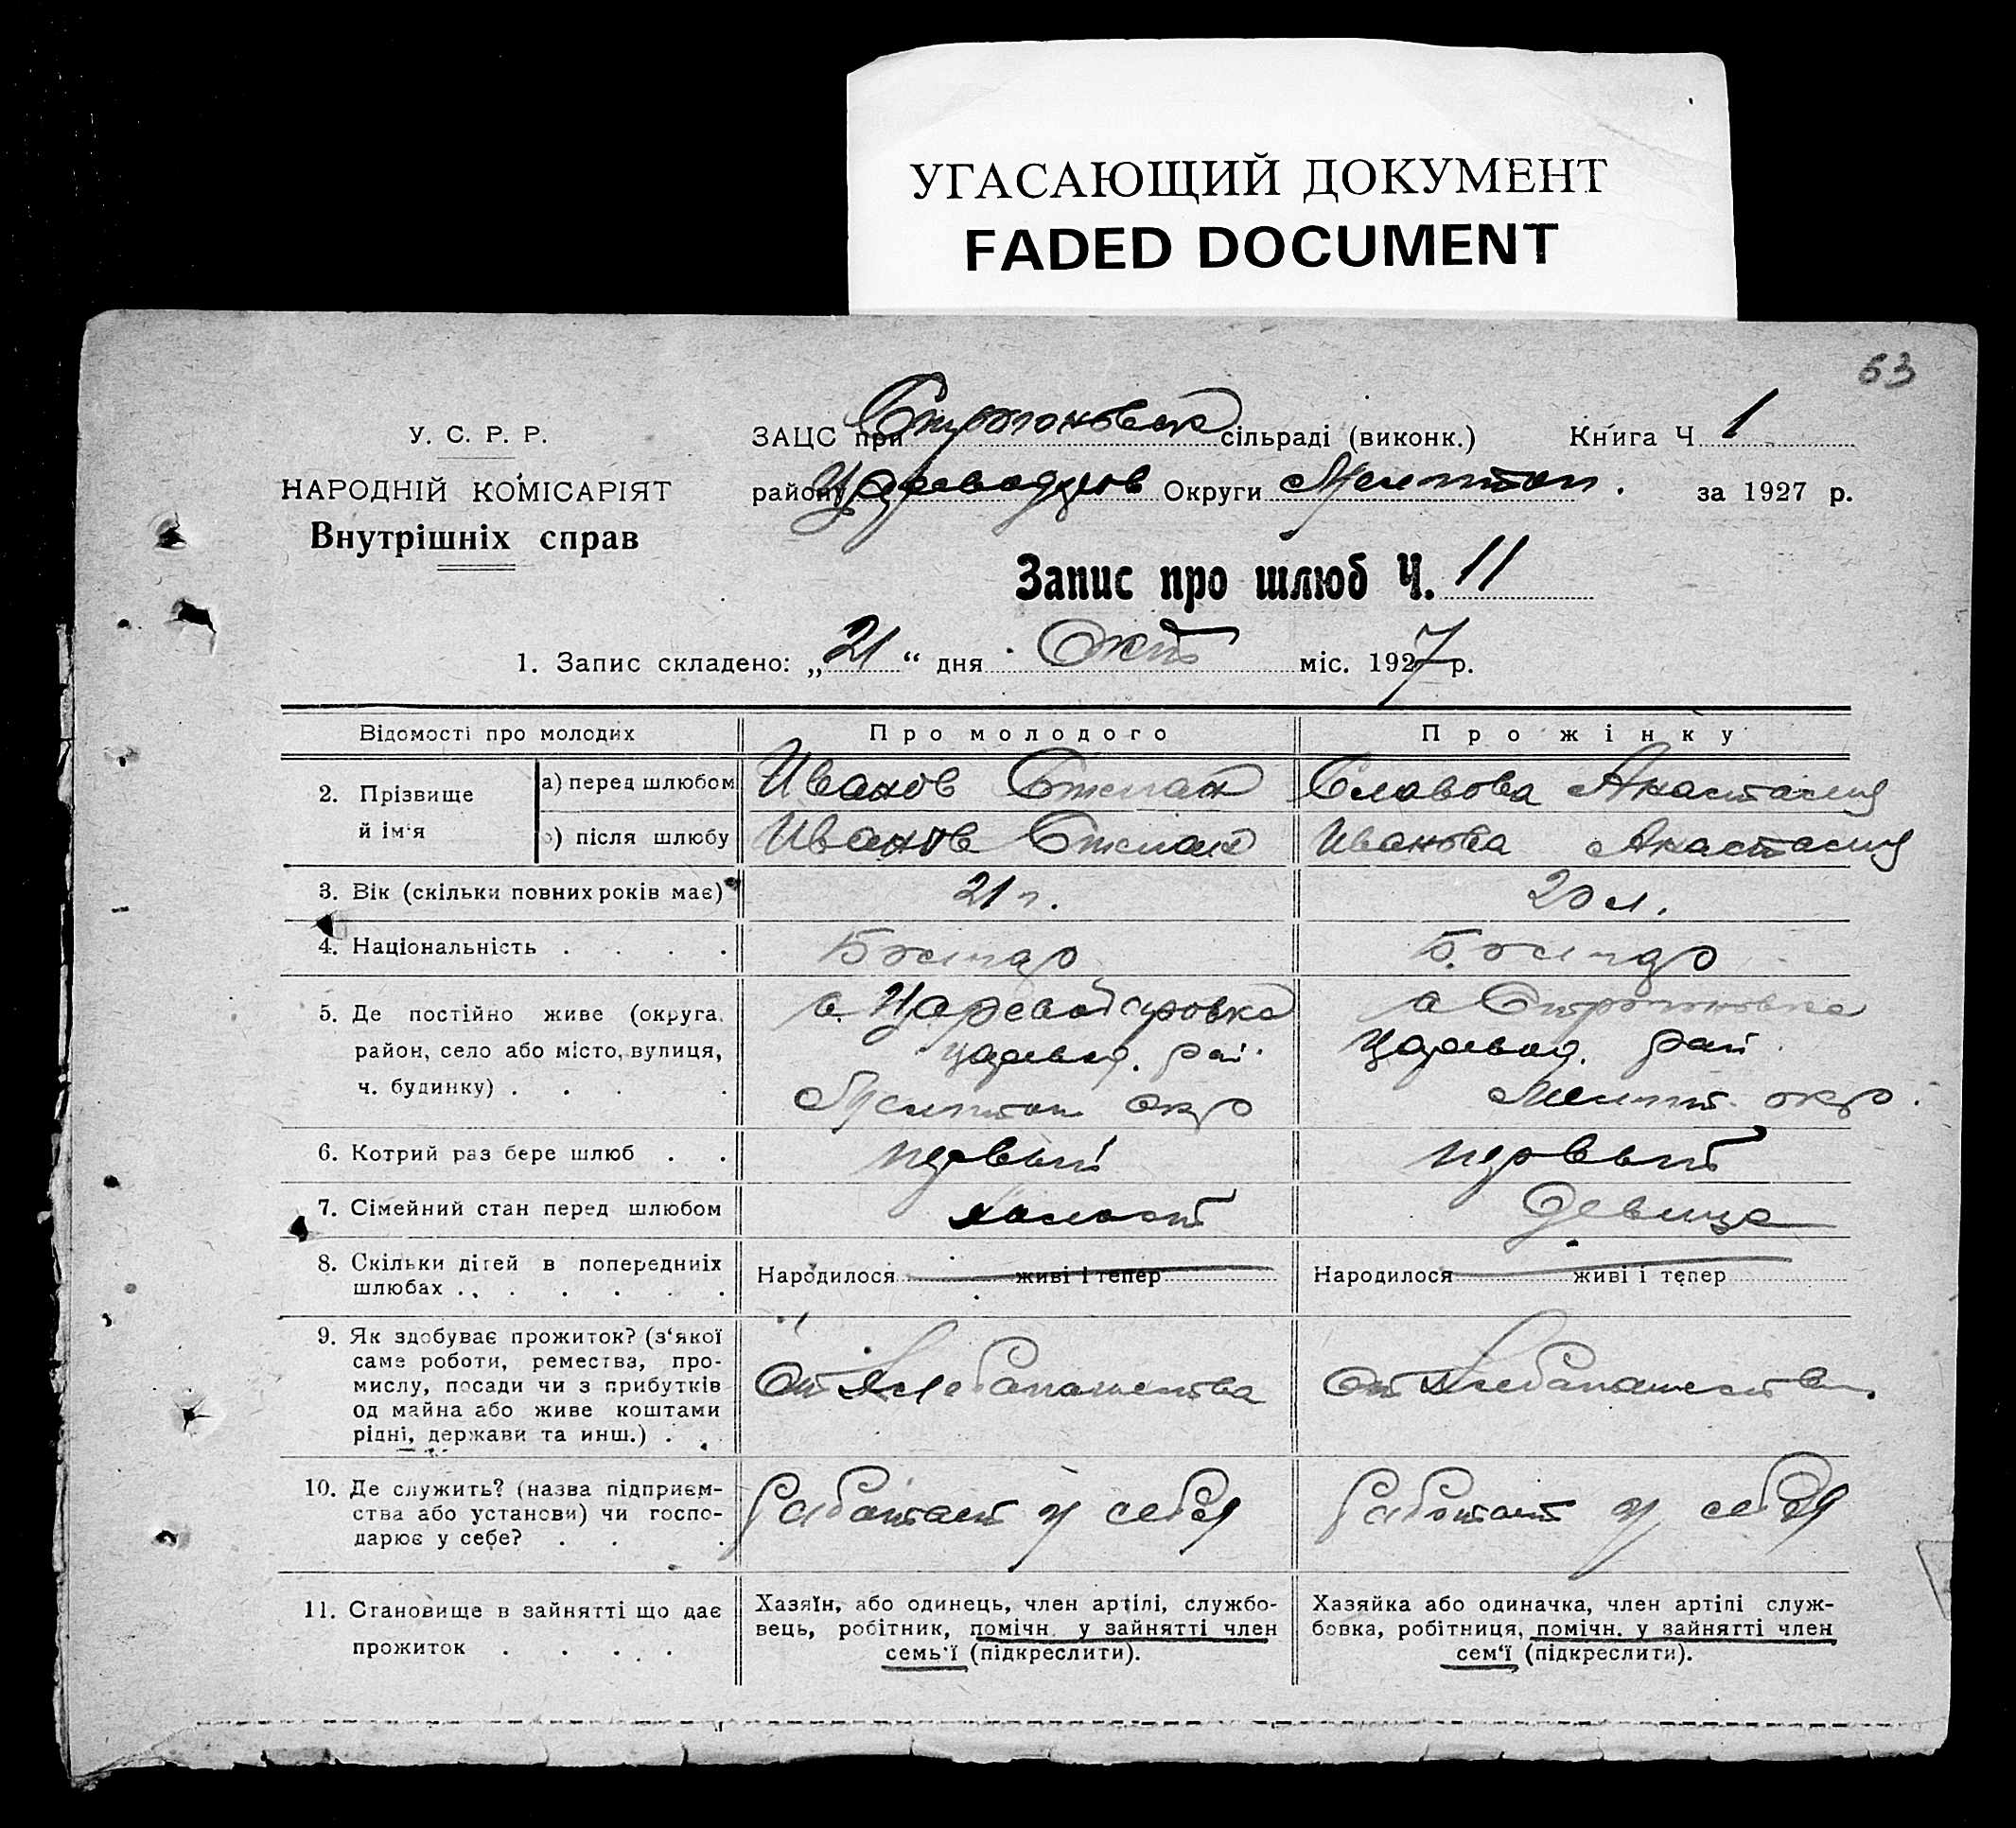 УГАСАЮЩИЙ ДОКУМЕНТ
FADED DOCUMENT
53
У. С. Р. Р.
НАРОДНІЙ КОМІСАРІЯТ
Внутрішніх справ
ЗАЦС при Строгоновск сільраді (виконк.) Книга Ч 1
району Округи Мелитоп. за 1927 р.
Запис про шлюб Ч. 11
1. Запис складено: „21“ дня Окт міс. 1927 р.
Відомості про молодих
Про молодого
Про жінку
2. Прізвище й ім'я
а) перед шлюбом
Иванов Степан
Славова Анастасия
б) після шлюбу
Иванов Степан
Иванова Анастасия
3. Вік (скільки повних років має)
21 г.
20 л.
4. Національність . . . .
Болгар
Болгар
5. Де постійно живе (округа,
район, село або місто, вулиця,
ч. будинку) . . . .
с. Царевод ровка
Царевод. рай.
Мелитоп окр
с Строгоновка
Царевод. рай.
Мелит. окр.
6. Котрий раз бере шлюб . .
первый
первый
7. Сімейний стан перед шлюбом
холост
девица
8. Скільки дітей в попередніх
шлюбах . . . . . . .
Народилося живі і тепер
Народилося живі і тепер
9. Як здобуває прожиток? (з'якої
саме роботи, ремества, про-
мислу, посади чи з прибутків
од майна або живе коштами
рідні, держави та инш.) . .
От хлебопашества
От хлебопашеств.
10. Де служить? (назва підприєм-
ства або установи) чи госпо-
дарює у себе? . . .
Работает у себя
Работает у себя
11. Становище в зайнятті що дає
прожиток . . . . .
Хазяїн, або одинець, член артілі, службо-
вець, робітник, помічн. у зайнятті член
семь'ї (підкреслити).
Хазяйка або одиначка, член артілі служ-
бовка, робітниця, помічн. у зайнятті член
сем'ї (підкреслити).